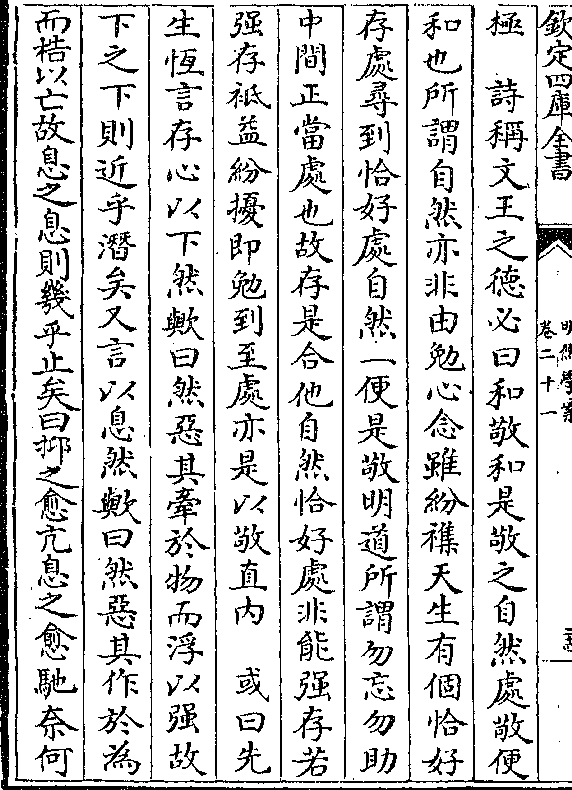 欽定四庫全書
明儒學案
卷二十一
極　詩稱文王之德必曰和敬和是敬之自然處敬便
和也所謂自然亦非由勉心念雖紛襍天生有個恰好
存處尋到恰好處自然一便是敬明道所謂勿忘勿助
中間正當處也故存是合他自然恰好處非能强存若
强存祇益紛擾即勉到至處亦是以敬直内　或曰先
生恆言存心以下然歟曰然惡其牽於物而浮以强故
下之下則近乎潛矣又言以息然歟曰然惡其作於為
而梏以亡故息之息則幾乎止矣曰抑之愈亢息之愈馳奈何